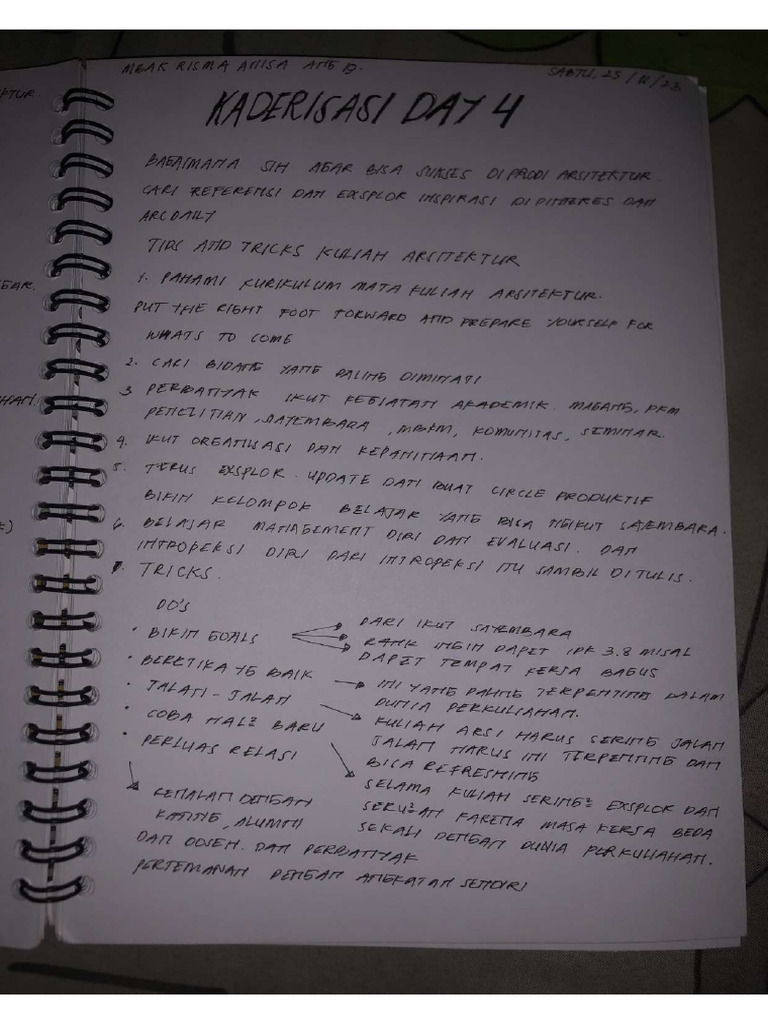 PTUR.
MBAK RISMA ANISA ANG 19.
SABTU, 25/11/23
KADERISASI DAY 4
BAGAIMANA SIH AGAR BISA SUKSES DI PRODI ARSITEKTUR.
CARI REFERENSI DAN EXSPLOR INSPIRASI DI PINTERES DAN
ARCDAILY
TIPS AND TRICKS KULIAH ARSITEKTUR
1. PAHAMI KURIKULUM MATA KULIAH ARSITEKTUR.
PUT THE RIGHT FOOT FORWARD AND PREPARE YOURSELF FOR
WHATS TO COME
2. CARI BIDANG YANG PALING DIMINATI
3 PERBANYAK IKUT KEGIATAN AKADEMIK. MAGANG, PKM
PENELITIAN, SAYEMBARA, MBKM, KOMUNITAS, SEMINAR.
4. IKUT ORGANISASI DAN KEPANITIAAN.
5. TERUS EXSPLOR. UPDATE DAN BUAT CIRCLE PRODUKTIF
BIKIN KELOMPOK BELAJAR YANG BISA NGIKUT SAYEMBARA.
6. BELAJAR MANAGEMENT DIRI DAN EVALUASI. DAN
INTROPEKSI DIRI DARI INTROPEKSI ITU SAMBIL DITULIS.
7. TRICKS.
DO'S
• BIKIN GOALS
DARI IKUT SAYEMBARA
RANK INGIN DAPET IPK 3.8 MISAL
DAPET TEMPAT KERJA BAGUS
• BERETIKA YG BAIK
INI YANG PALING TERPENTING DALAM
DUNIA PERKULIAHAN.
• JALAN-JALAN
KULIAH ARSI HARUS SERING JALAN
JALAN HARUS INI TERPENTING DAN
BISA REFRESHING
• COBA HAL2 BARU
SELAMA KULIAH SERING2 EXSPLOR DAN
SERU2AN KARENA MASA KERJA BEDA
SEKALI DENGAN DUNIA PERKULIAHAN.
• PERLUAS RELASI
KENALAN DENGAN
KATING, ALUMNI
DAN DOSEN. DAN PERBANYAK
PERTEMANAN DENGAN ANGKATAN SENDIRI